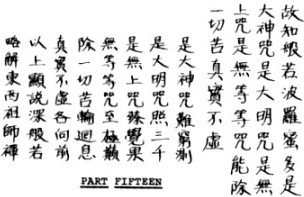 故知般若波羅蜜多是
大神咒是大明咒是無
上咒是無等等咒能除
一切苦真實不虛
是大神咒難窮測
是大明咒照三千
是無上咒臻覺果
無等等咒至極巔
除一切苦輪迴息
真實不虛各向前
以上顯說深般若
略解東西祖師禪
PART FIFTEEN